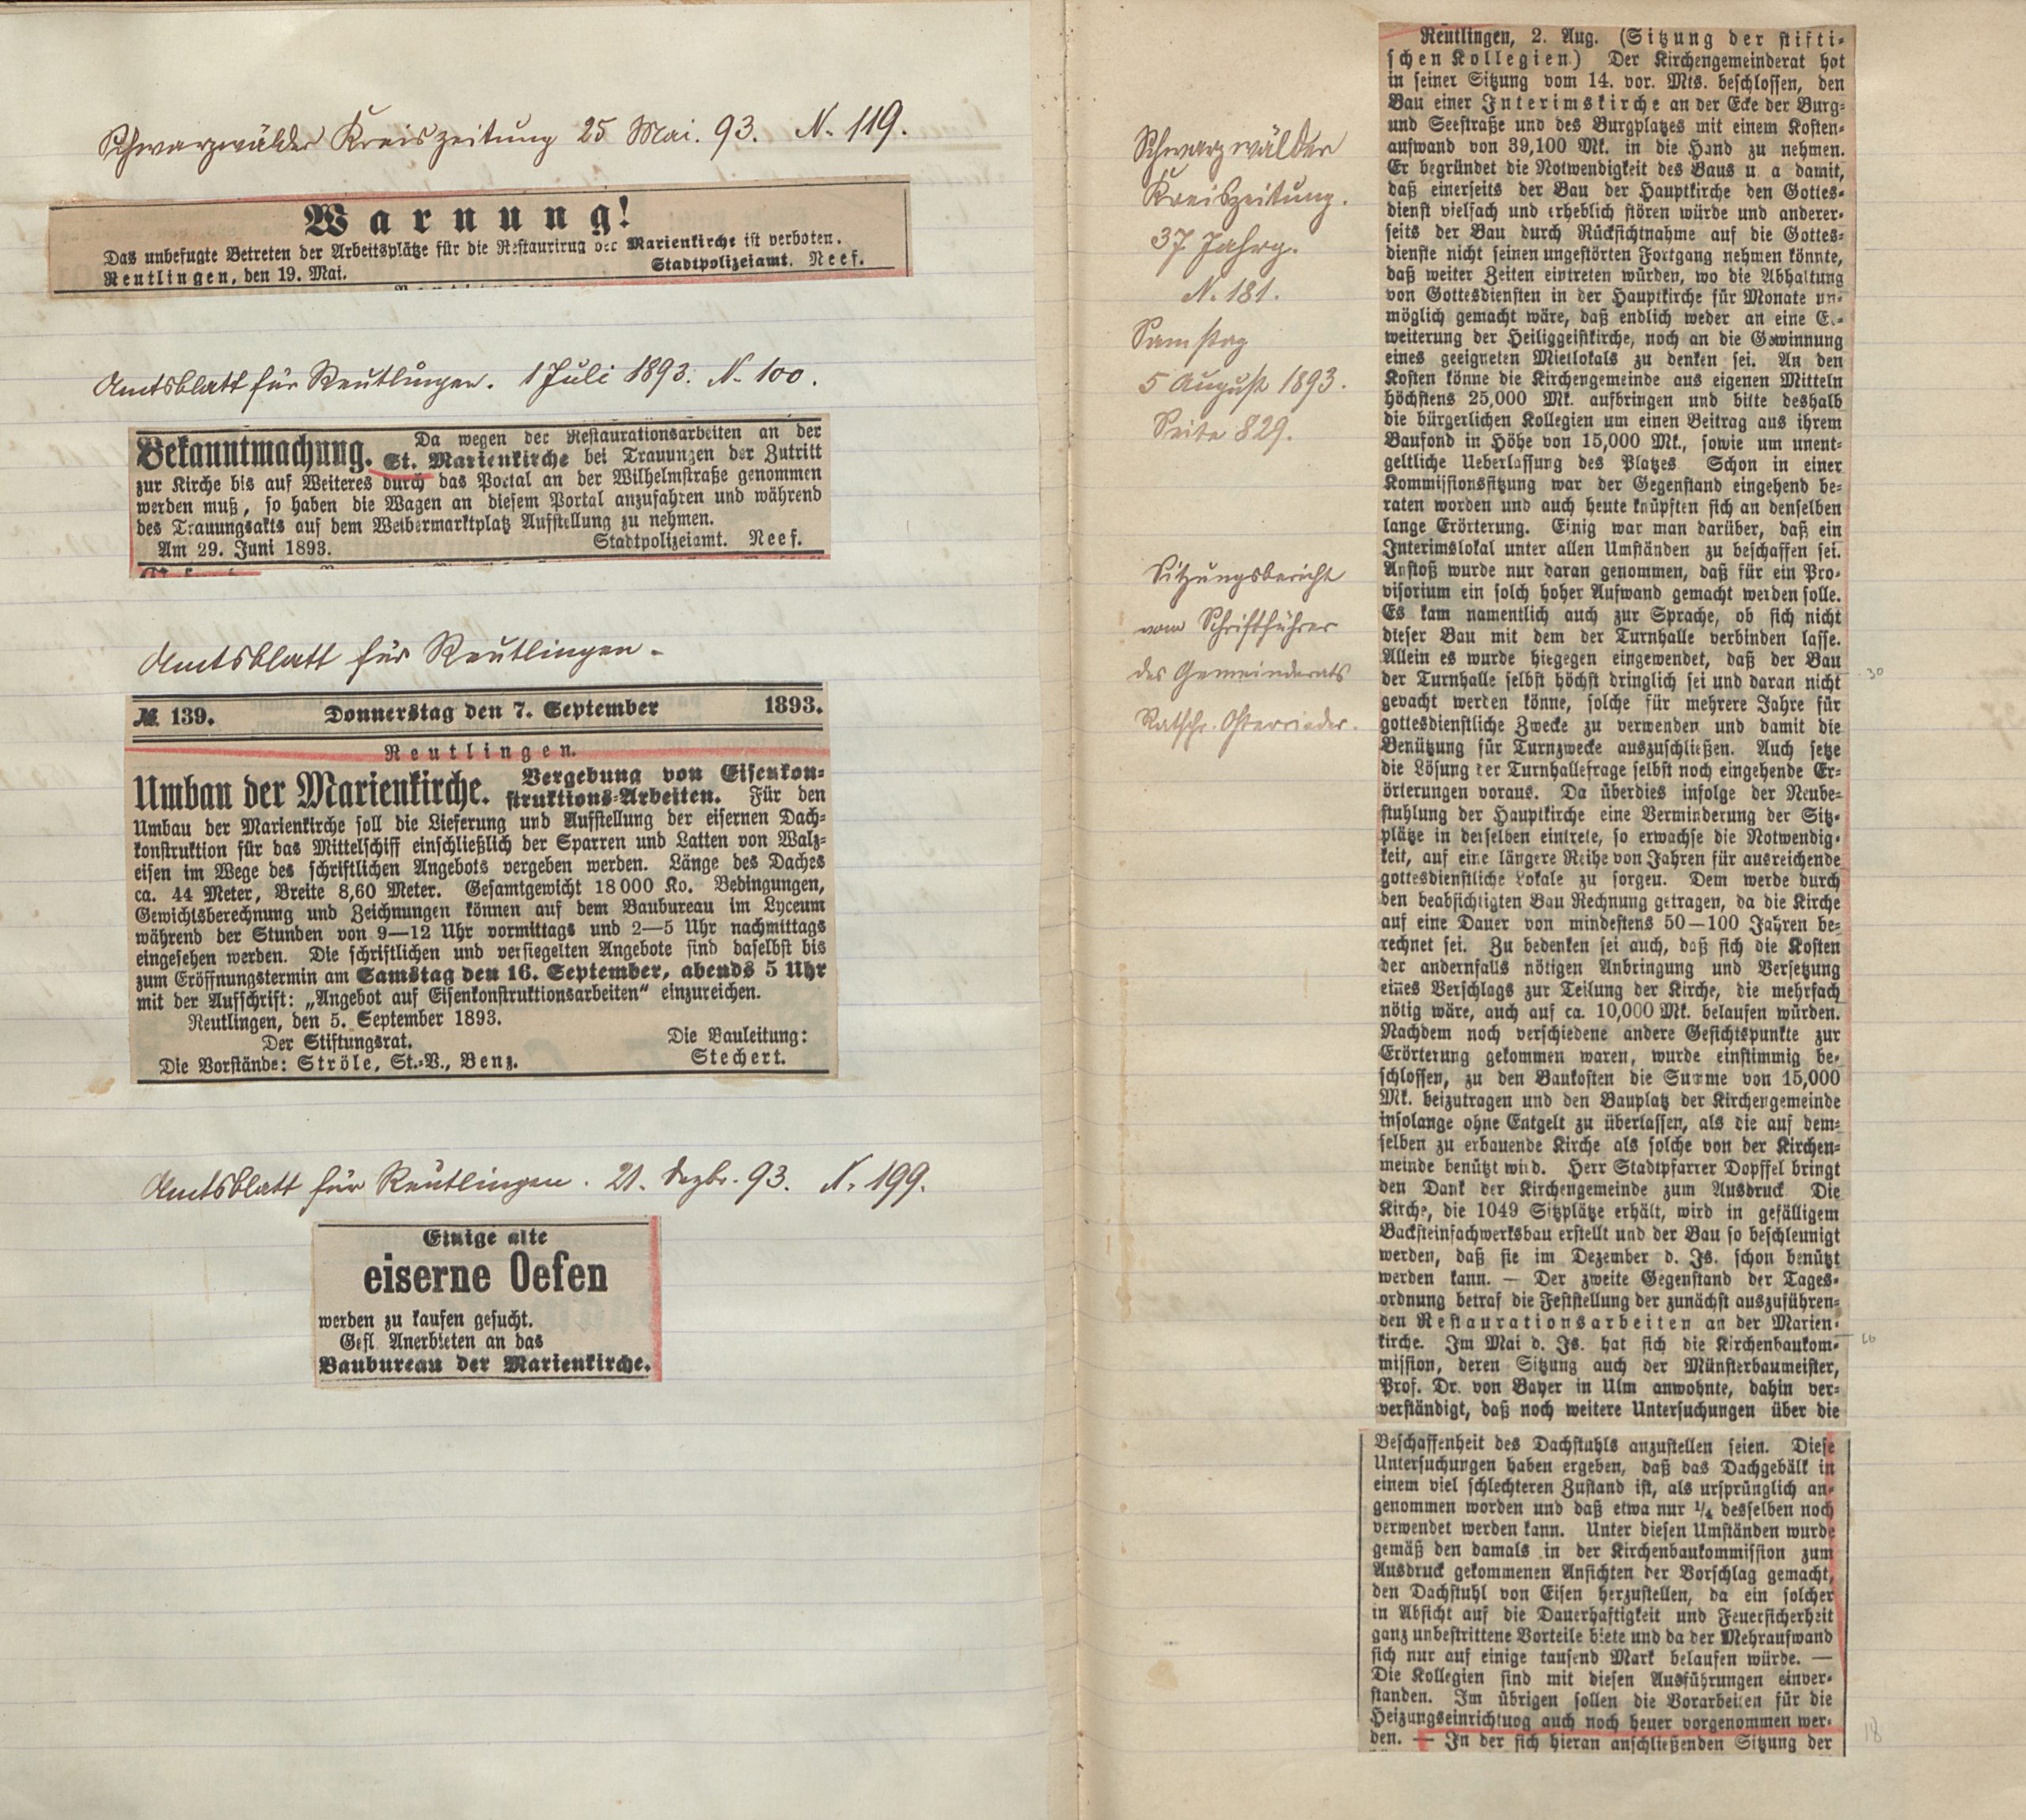 Schwarzwälder Kreiszeitung 25 Mai. 93. N. 119.
Warnung!
Das unbefugte Betreten der Arbeitsplätze für die Restaurirung der Marienkirche ist verboten.
Reutlingen, den 19. Mai. Stadtpolizeiamt. Neef.
Amtsblatt für Reutlingen. 1 Juli 1893. N. 100.
Bekanntmachung. Da wegen der Restaurationsarbeiten an der
St. Marienkirche bei Trauungen der Zutritt
zur Kirche bis auf Weiteres durch das Portal an der Wilhelmstraße genommen
werden muß, so haben die Wagen an diesem Portal anzufahren und während
des Trauungsakts auf dem Weibermarktplatz Aufstellung zu nehmen.
Am 29. Juni 1893. Stadtpolizeiamt. Neef.
Amtsblatt für Reutlingen.
№ 139. Donnerstag den 7. September 1893.
Reutlingen.
Umbau der Marienkirche. Vergebung von Eisenkon-
struktions-Arbeiten. Für den
Umbau der Marienkirche soll die Lieferung und Aufstellung der eisernen Dach-
konstruktion für das Mittelschiff einschließlich der Sparren und Latten von Walz-
eisen im Wege des schriftlichen Angebots vergeben werden. Länge des Daches
ca. 44 Meter, Breite 8,60 Meter. Gesamtgewicht 18000 Ko. Bedingungen,
Gewichtsberechnung und Zeichnungen können auf dem Baubureau im Lyceum
während der Stunden von 9—12 Uhr vormittags und 2—5 Uhr nachmittags
eingesehen werden. Die schriftlichen und versiegelten Angebote sind daselbst bis
zum Eröffnungstermin am Samstag den 16. September, abends 5 Uhr
mit der Aufschrift: „Angebot auf Eisenkonstruktionsarbeiten“ einzureichen.
Reutlingen, den 5. September 1893.
Der Stiftungsrat. Die Bauleitung:
Die Vorstände: Ströle, St.-V., Benz. Stechert.
Amtsblatt für Reutlingen. 21. Dezbr. 93. N. 199.
Einige alte
eiserne Oefen
werden zu kaufen gesucht.
Gefl. Anerbieten an das
Baubureau der Marienkirche.
Schwarzwälder
Kreiszeitung.
37 Jahrg.
N. 181.
Samstag
5 August 1893.
Seite 829.
Sitzungsbericht
vom Schriftführer
des Gemeinderats
Ratschr. Osterrieder.
Reutlingen, 2. Aug. (Sitzung der stifti-
schen Kollegien.) Der Kirchengemeinderat hat
in seiner Sitzung vom 14. vor. Mts. beschlossen, den
Bau einer Interimskirche an der Ecke der Burg-
und Seestraße und des Burgplatzes mit einem Kosten-
aufwand von 39,100 Mk. in die Hand zu nehmen.
Er begründet die Notwendigkeit des Baus u. a damit,
daß einerseits der Bau der Hauptkirche den Gottes-
dienst vielfach und erheblich stören würde und anderer-
seits der Bau durch Rücksichtnahme auf die Gottes-
dienste nicht seinen ungestörten Fortgang nehmen könnte,
daß weiter Zeiten eintreten würden, wo die Abhaltung
von Gottesdiensten in der Hauptkirche für Monate un-
möglich gemacht wäre, daß endlich weder an eine Er-
weiterung der Heiliggeistkirche, noch an die Gewinnung
eines geeigneten Mietlokals zu denken sei. An den
Kosten könne die Kirchengemeinde aus eigenen Mitteln
höchstens 25,000 Mk. aufbringen und bitte deshalb
die bürgerlichen Kollegien um einen Beitrag aus ihrem
Baufond in Höhe von 15,000 Mk., sowie um unent-
geltliche Ueberlassung des Platzes. Schon in einer
Kommissionssitzung war der Gegenstand eingehend be-
raten worden und auch heute knüpften sich an denselben
lange Erörterung. Einig war man darüber, daß ein
Interimslokal unter allen Umständen zu beschaffen sei.
Anstoß wurde nur daran genommen, daß für ein Pro-
visorium ein solch hoher Aufwand gemacht werden solle.
Es kam namentlich auch zur Sprache, ob sich nicht
dieser Bau mit dem der Turnhalle verbinden lasse.
Allein es wurde hiegegen eingewendet, daß der Bau
der Turnhalle selbst höchst dringlich sei und daran nicht
gedacht werden könne, solche für mehrere Jahre für
gottesdienstliche Zwecke zu verwenden und damit die
Benützung für Turnzwecke auszuschließen. Auch setze
die Lösung der Turnhallefrage selbst noch eingehende Er-
örterungen voraus. Da überdies infolge der Neube-
stuhlung der Hauptkirche eine Verminderung der Sitz-
plätze in derselben eintrete, so erwachse die Notwendig-
keit, auf eine längere Reihe von Jahren für ausreichende
gottesdienstliche Lokale zu sorgen. Dem werde durch
den beabsichtigten Bau Rechnung getragen, da die Kirche
auf eine Dauer von mindestens 50—100 Jahren be-
rechnet sei. Zu bedenken sei auch, daß sich die Kosten
der andernfalls nötigen Anbringung und Versetzung
eines Verschlags zur Teilung der Kirche, die mehrfach
nötig wäre, auch auf ca. 10,000 Mk. belaufen würden.
Nachdem noch verschiedene andere Gesichtspunkte zur
Erörterung gekommen waren, wurde einstimmig be-
schlossen, zu den Baukosten die Summe von 15,000
Mk. beizutragen und den Bauplatz der Kirchengemeinde
insolange ohne Entgelt zu überlassen, als die auf dem-
selben zu erbauende Kirche als solche von der Kirchen-
meinde benützt wird. Herr Stadtpfarrer Dopffel bringt
den Dank der Kirchengemeinde zum Ausdruck. Die
Kirche, die 1049 Sitzplätze erhält, wird in gefälligem
Backsteinfachwerksbau erstellt und der Bau so beschleunigt
werden, daß sie im Dezember d. Js. schon benützt
werden kann. — Der zweite Gegenstand der Tages-
ordnung betraf die Feststellung der zunächst auszuführen-
den Restaurationsarbeiten an der Marien-
kirche. Im Mai d. Js. hat sich die Kirchenbaukom-
mission, deren Sitzung auch der Münsterbaumeister,
Prof. Dr. von Bayer in Ulm anwohnte, dahin ver-
verständigt, daß noch weitere Untersuchungen über die
Beschaffenheit des Dachstuhls anzustellen seien. Diese
Untersuchungen haben ergeben, daß das Dachgebälk in
einem viel schlechteren Zustand ist, als ursprünglich an-
genommen worden und daß etwa nur ¼ desselben noch
verwendet werden kann. Unter diesen Umständen wurde
gemäß den damals in der Kirchenbaukommission zum
Ausdruck gekommenen Ansichten der Vorschlag gemacht,
den Dachstuhl von Eisen herzustellen, da ein solcher
in Absicht auf die Dauerhaftigkeit und Feuersicherheit
ganz unbestrittene Vorteile biete und da der Mehraufwand
sich nur auf einige tausend Mark belaufen würde. —
Die Kollegien sind mit diesen Ausführungen einver-
standen. Im übrigen sollen die Vorarbeiten für die
Heizungseinrichtuog auch noch heuer vorgenommen wer-
den. — In der sich hieran anschließenden Sitzung der
30
60
18